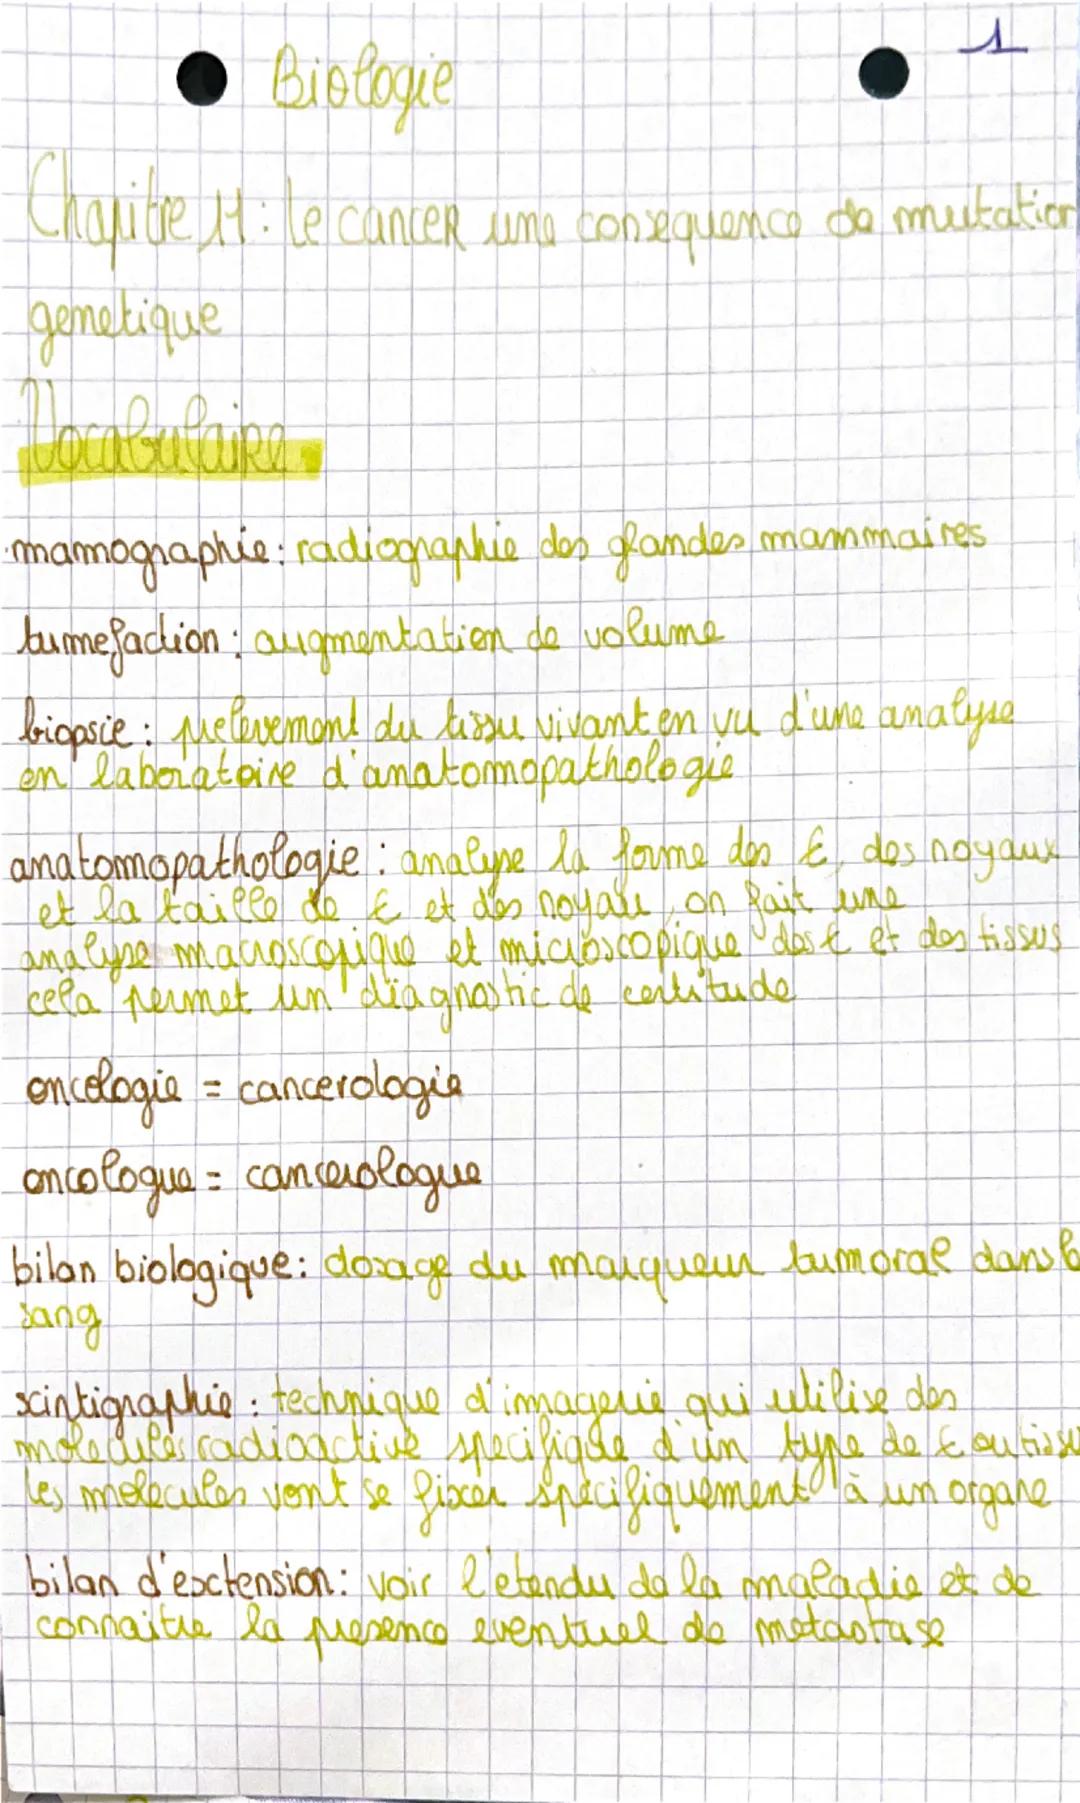 1
Biologie
Chapitre 11 : le cancer une consequence de mutation
genetique
Vocabulaire
mamographie : radiographie des glandes mammaires
tumefaction : augmentation de volume
biopsie : prelevement du tissu vivant en vu d'une analyse
en laboratoire d'anatomopathologie
anatomopathologie : analyse la forme des ₵, des noyaux
et la taille de ₵ et des noyau, on fait une
analyse macroscopique et microscopique des ₵ et des tissus
cela permet un diagnostic de certitude
oncologie = cancerologie
oncologue = cancerologue
bilan biologique : dosage du marqueur tumoral dans
sang
scintigraphie : technique d'imagerie qui utilise des
molecules radioactive specifique d'un type de ₵ ou tissu
les molecules vont se fixer specifiquement à un organe
bilan d'exctension : voir l'etendu de la maladie et de
connaitre la presence eventuel de metastase